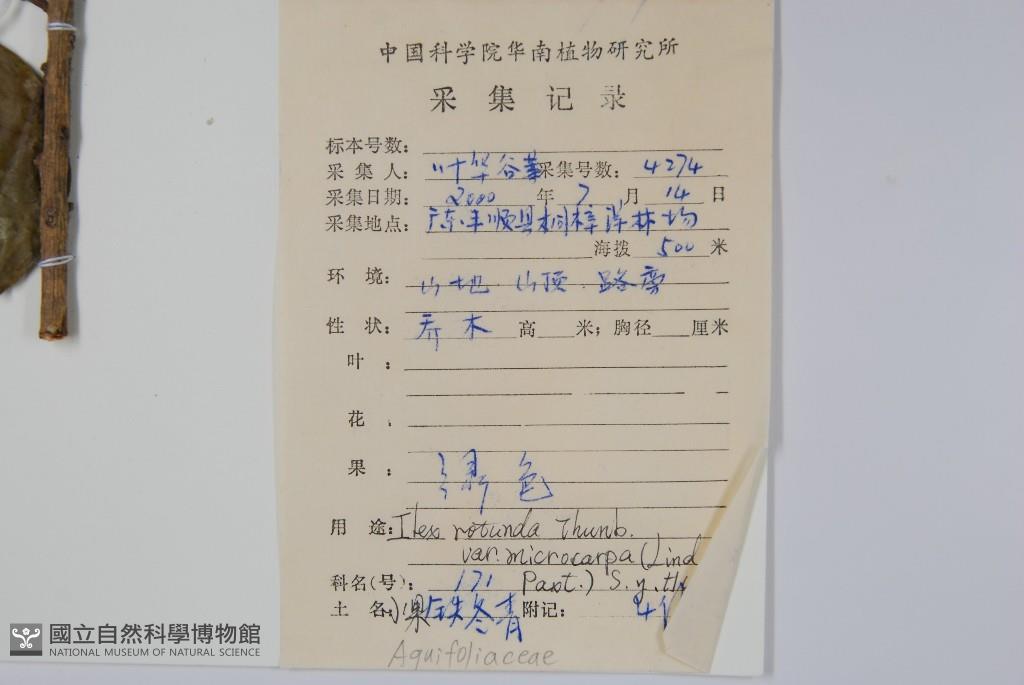 中国科学院华南植物研究所
采集记录
标本号数:
采集人: 叶华谷 采集号数: 4274
采集日期: 2000 年 7 月 14 日
采集地点: 广东丰顺县桐梓洋林场
海拨 500 米
环境: 山地 山顶 路旁
性状: 乔木 高 米; 胸径 厘米
叶:
花
果: 绿色
用途: Ilex rotunda Thunb.
var. microcarpa (Lind
科名(号): 171 Paxt.) S.y.
土名: 小果铁冬青 附记:
Aquifoliaceae
國立自然科學博物館
NATIONAL MUSEUM OF NATURAL SCIENCE